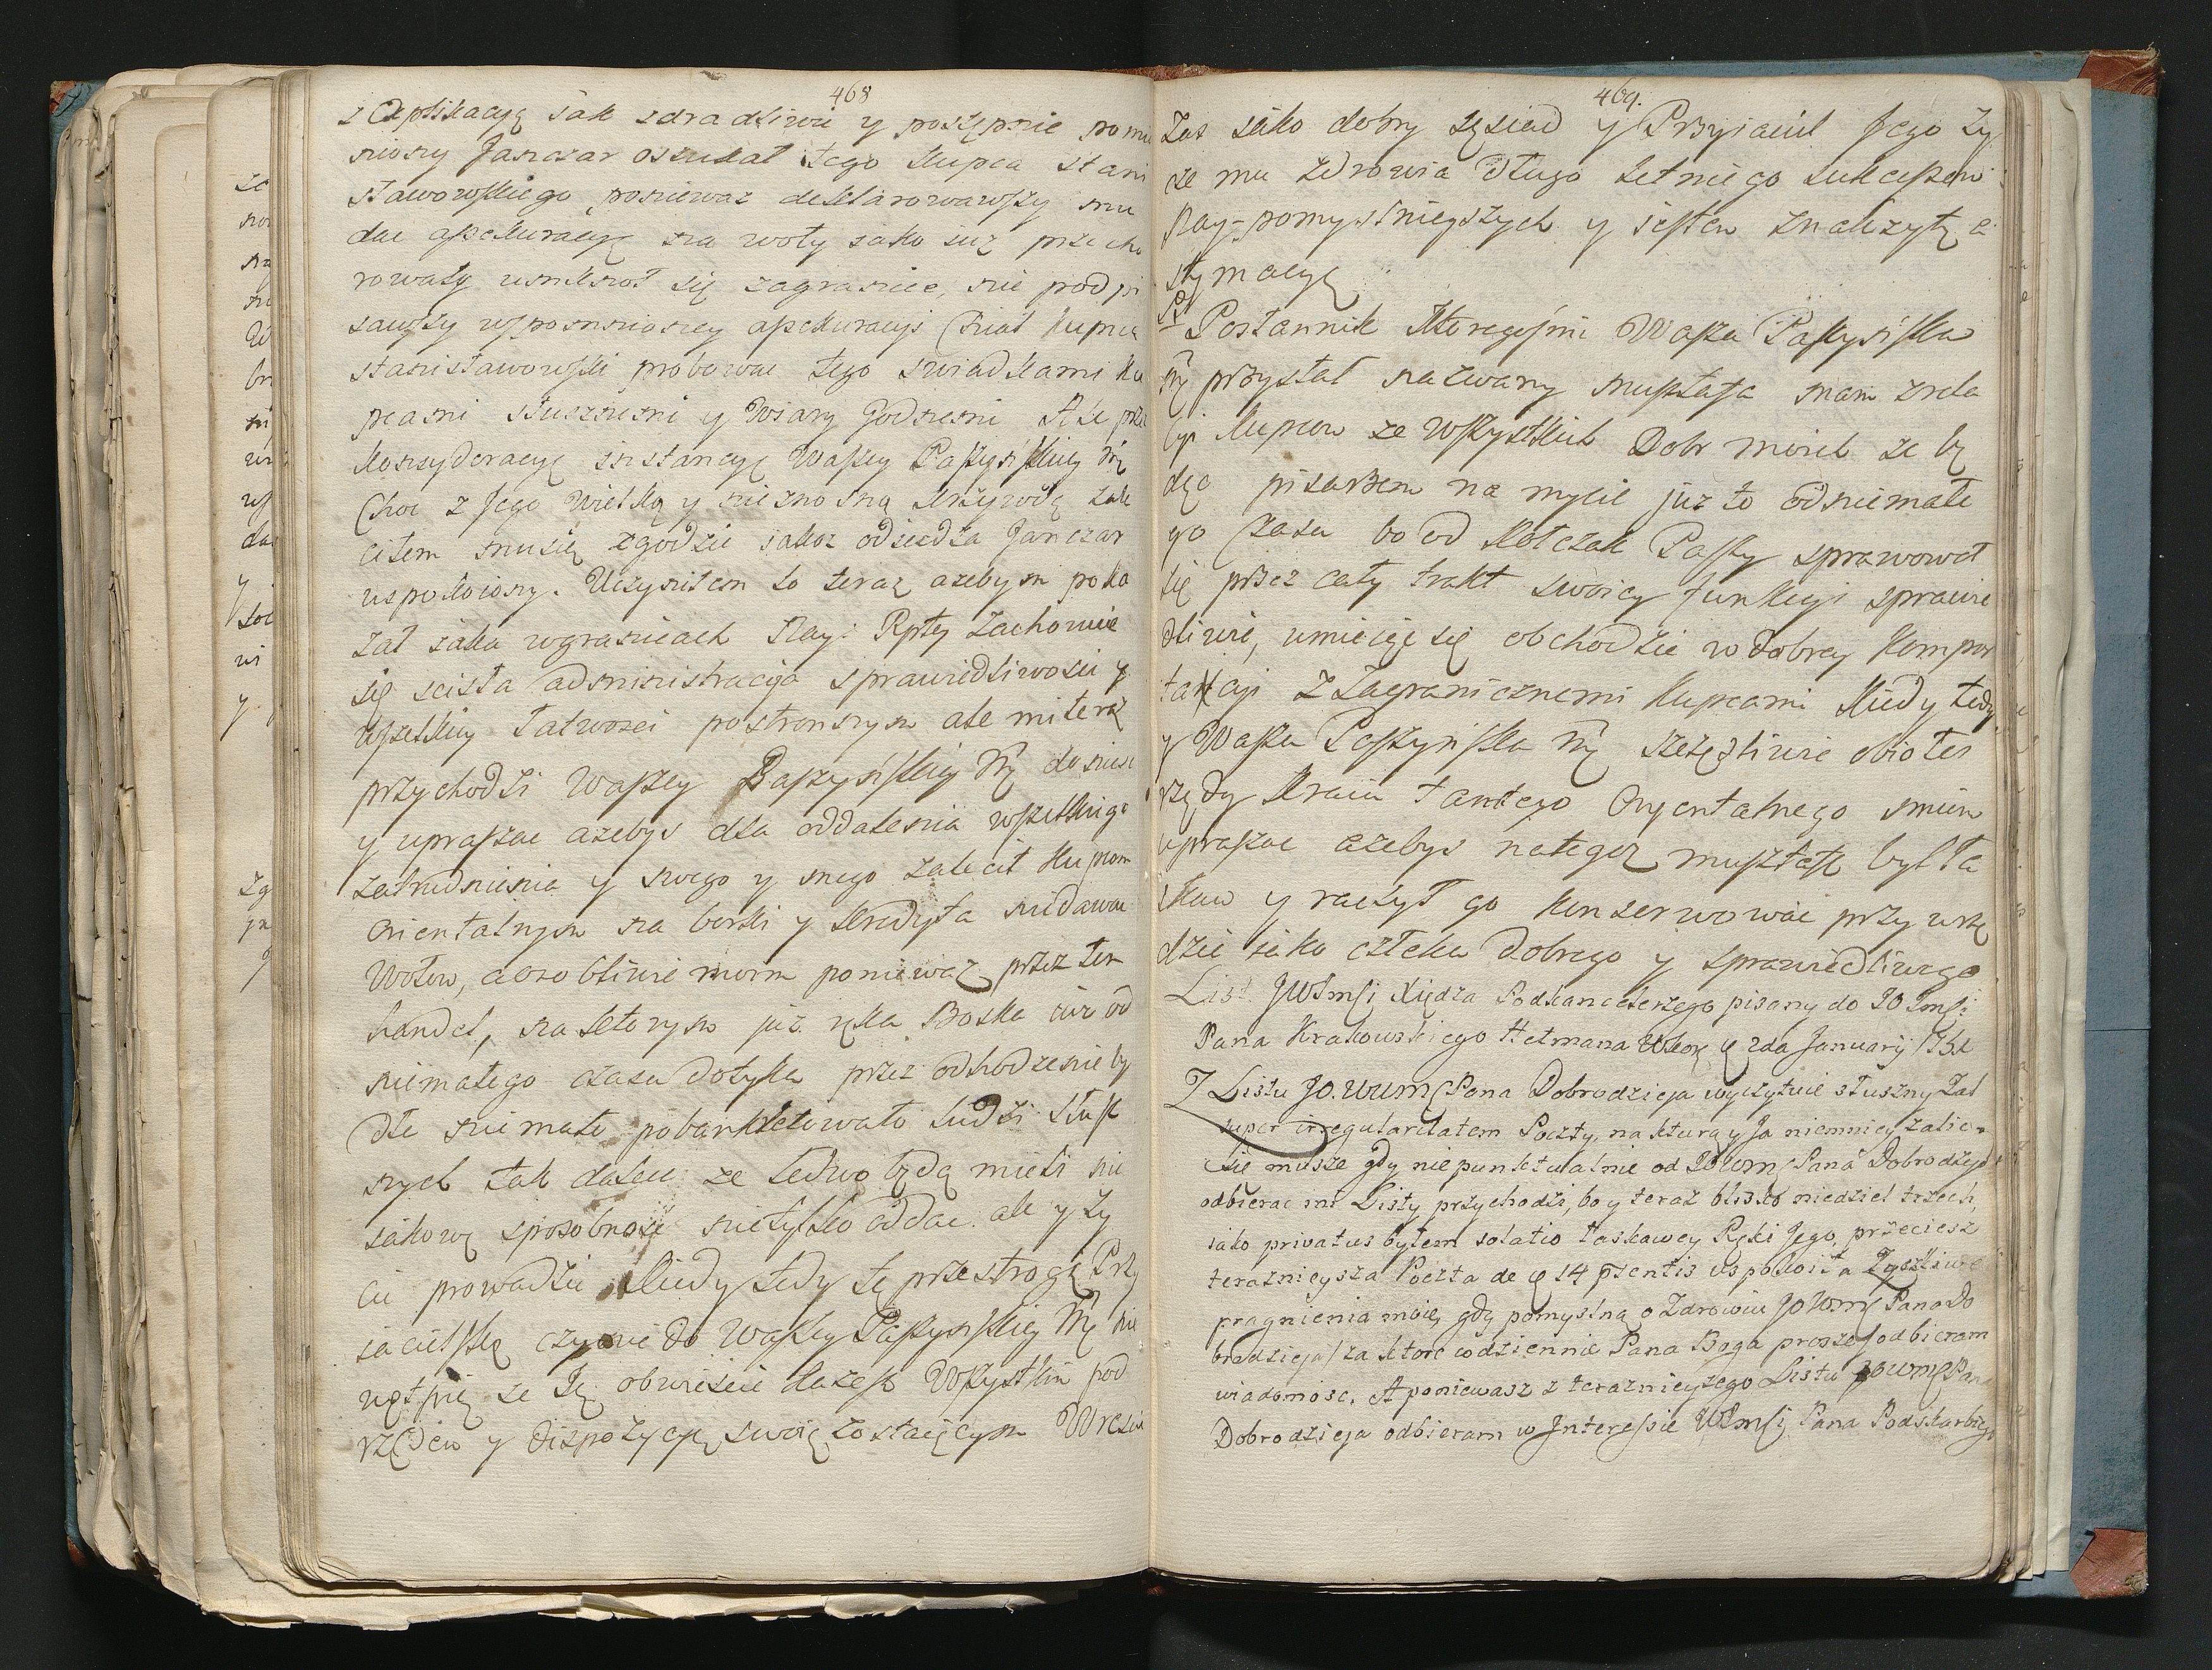 468
z Aplikacyą iak zdradliwie y postępnie pomie
niony Janczar oszukał tego kupca Stani
sławowskiego, poniewaz deklarowawszy mu
dac assekuracyę na woły iako iuz przecho
rowały umknoł się zagranice, nie podpi
sawszy wspomnioney assekuracyi Chciał kupiec
stanisławowski probowac tego swiadkami ku
pcami słusznemi y Wiary Godnemi A ze przez
konsyderacyę instancyę Waszey Paszynskiey Mci
Choc z Jego Wielką y nieznosną krzywdą zale
ciłem musię zgodzic iakoz odiezdza Janczar
uspokoiony. Uczyniłem to teraz azebym poka
zał iaka wgranicach Nay: Rptey zachowuie
się scisła administracya sprawiedliwosci y
wszelkiey łatwosci postronnym ale mi teraz
przychodzi Waszey Baszynskiey Mci doniesc
y upraszac azebys dla oddalenia wszelkiego
zatrudnienia y swego y mego zalecił kupcom
Orientalnym na borki y kredyta niedawac
Wołow, aosobliwie morm poniewaz przez ten
handel, na ktorym juz ręka Boska iuz od
niemałego czasu dotyka przez odchodzenie by
dła niemało pobankietowało ludzi Słusz
nych tak dalece ze ledwo będą mieli nie
iakową sposobnosc nietylko oddac ale y zy
cie prowadzic Kiedy tedy tę przestrogę Przy
iacielską czynie do Waszey Paszynskiey Mci nie
wątpię ze Ią obwiescic każesz Wszystkim pod
rządem y dispozycyą swoią zostaięcym Wreście
469.
Zas iako dobry sąsiad y Przyiaciel Jego zy
cze mu zdrowia długo letniego sukcessow
Nay-pomyslnieyszych y iestem z nalezytą e
stymacyą
PS
Posłannik ktoregosmi Wasza Paszynska
Mć przysłał nazwany mustafa mam zrela
cyi kupcow ze wszystkich Dobr moich ze bę
dąc pisarzem na mycie juz to odniemałe
go czasu bo od Kołczak Paszy sprawował
się przez cały trakt swoiey funkcyi sprawie
dliwie, umieięc się obchodzic w dobrey kompor
tatcyi z Zagranicznemi kupcami Kiedy tedy
y Wasza Paszynska Mć szczęsliwie obiołes
rządy kraiu tamtego Oryentalnego smiem
upraszac azebys nategoz mustafę był ła
skaw y raczył go konserwowac przy urzę
dzie iako człeka dobrego y sprawiedliwego
List JWJmsci Xiędza Podkanclerzego pisany do JO Jmsci
Pana Krakowskiego Hetmana WKor: 2da January 175
Z Listu JO. WWMsc Pana Dobrodzieja wyczytuie słuszny zal
super irregularitatem Poczty, na ktorą y Ja niemniey zalic-
się muszę gdy nie punktualnie od JOWMsc Pana Dobrodzieja
odbierac mi Listy przychodzi, bo y teraz blisko niedziel trzech
iako privatus byłem solatio łaskawey Ręki Jego, przeciesz
teraznieysza Poczta de 14 psentis uspokoiła Zyczliwe
pragnienia moie, gdy pomyslną o Zdrowiu JOWMsc Pana Do
brodzieja / za ktore codziennie Pana Boga proszę / odbieram
wiadomosc. A poniewasz z teraznieyszego Listu JOWMsc Pana
Dobrodzieja odbieram w Interessie WJmsci Pana Podskarbiego